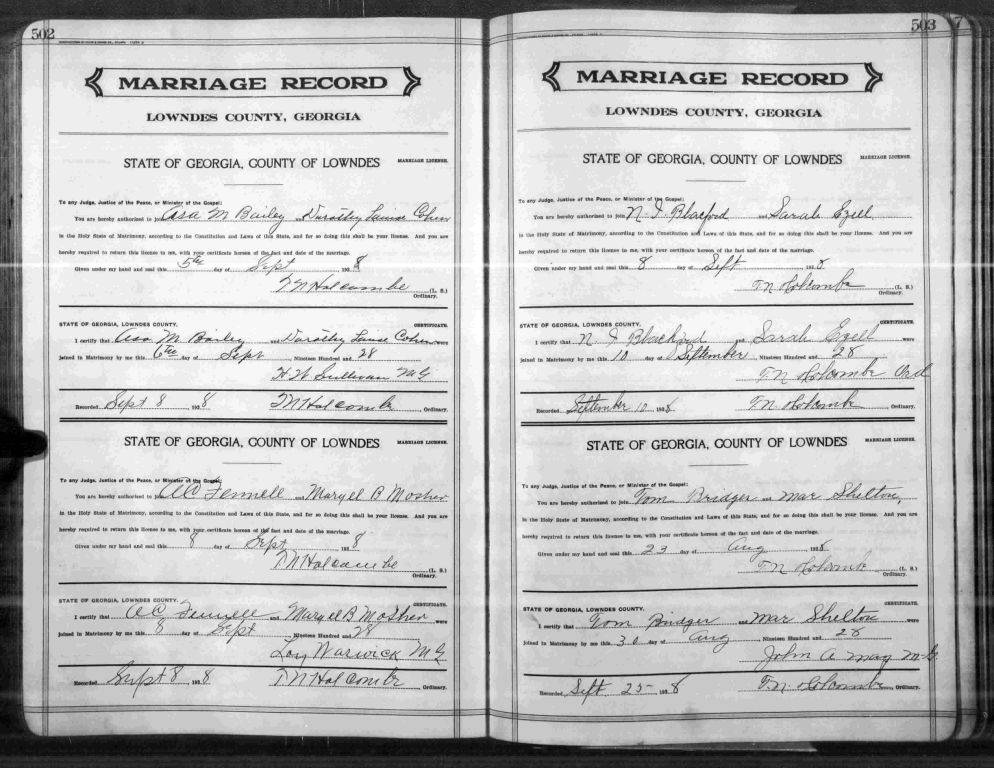 502
MARRIAGE RECORD
LOWNDES COUNTY, GEORGIA
STATE OF GEORGIA, COUNTY OF LOWNDES MARRIAGE LICENSE.
To any Judge, Justice of the Peace, or Minister of the Gospel:
You are hereby authorized to join Asa M Bailey and Dorothy Louise Cohen
in the Holy State of Matrimony, according to the Constitution and Laws of this State, and for so doing this shall be your license. And you are
hereby required to return this license to me, with your certificate hereon of the fact and date of the marriage.
Given under my hand and seal this 5th day of Sept 1928
T N Holcombe (L. S.)
Ordinary.
STATE OF GEORGIA, LOWNDES COUNTY. CERTIFICATE.
I certify that Asa M Bailey and Dorothy Louise Cohen were
joined in Matrimony by me this 6th day of Sept Nineteen Hundred and 28
H W Sullivan M G
Recorded Sept 8 1928 T N Holcombe Ordinary.
STATE OF GEORGIA, COUNTY OF LOWNDES MARRIAGE LICENSE.
To any Judge, Justice of the Peace, or Minister of the Gospel:
You are hereby authorized to join A C Fennell and Maryel B Mosher
in the Holy State of Matrimony, according to the Constitution and Laws of this State, and for so doing this shall be your license. And you are
hereby required to return this license to me, with your certificate hereon of the fact and date of the marriage.
Given under my hand and seal this 8 day of Sept 1928
T N Holcombe (L. S.)
Ordinary.
STATE OF GEORGIA, LOWNDES COUNTY. CERTIFICATE.
I certify that A C Fennell and Maryel B Mosher were
joined in Matrimony by me this 8 day of Sept Nineteen Hundred and 28
Loy Warwick M G
Recorded Sept 8 1928 T N Holcombe Ordinary.
503
7
MARRIAGE RECORD
LOWNDES COUNTY, GEORGIA
STATE OF GEORGIA, COUNTY OF LOWNDES MARRIAGE LICENSE.
To any Judge, Justice of the Peace, or Minister of the Gospel:
You are hereby authorized to join N. I. Blacford and Sarah Ezell
in the Holy State of Matrimony, according to the Constitution and Laws of this State, and for so doing this shall be your license. And you are
hereby required to return this license to me, with your certificate hereon of the fact and date of the marriage.
Given under my hand and seal this 8 day of Sept 1928
T. N Holcombe (L. S.)
Ordinary.
STATE OF GEORGIA, LOWNDES COUNTY. CERTIFICATE.
I certify that N. I and Sarah Ezell were
joined in Matrimony by me this 10 day of September Nineteen Hundred and 28
T. N Holcombe Ord
Recorded September 10 1928 T. N Holcombe Ordinary.
STATE OF GEORGIA, COUNTY OF LOWNDES MARRIAGE LICENSE.
To any Judge, Justice of the Peace, or Minister of the Gospel:
You are hereby authorized to join Tom Bridger and Mar Shelton,
in the Holy State of Matrimony, according to the Constitution and Laws of this State, and for so doing this shall be your license. And you are
hereby required to return this license to me, with your certificate hereon of the fact and date of the marriage.
Given under my hand and seal this 23 day of Aug 1928
T. N Holcomb (L. S.)
Ordinary.
STATE OF GEORGIA, LOWNDES COUNTY. CERTIFICATE.
I certify that Tom Bridger and Mar Shelton were
joined in Matrimony by me this 30 day of Aug Nineteen Hundred and 28
John A May M. G.
Recorded Sept 25 1928 T. N Holcombe Ordinary.